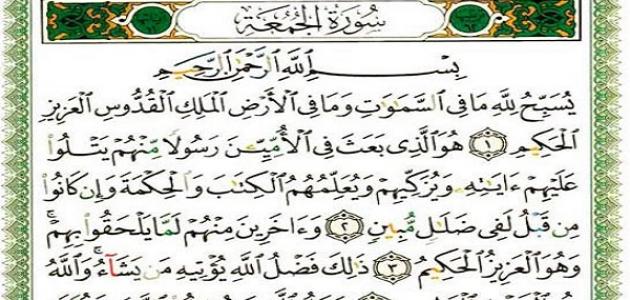 سُورَةُ الجُمُعَةِ
بِسْمِ ٱللَّهِ ٱلرَّحْمَٰنِ ٱلرَّحِيمِ
يُسَبِّحُ لِلَّهِ مَا فِى ٱلسَّمَٰوَٰتِ وَمَا فِى ٱلْأَرْضِ ٱلْمَلِكِ ٱلْقُدُّوسِ ٱلْعَزِيزِ
ٱلْحَكِيمِ ١ هُوَ ٱلَّذِى بَعَثَ فِى ٱلْأُمِّيِّـۧنَ رَسُولًا مِّنْهُمْ يَتْلُوا۟
عَلَيْهِمْ ءَايَٰتِهِۦ وَيُزَكِّيهِمْ وَيُعَلِّمُهُمُ ٱلْكِتَٰبَ وَٱلْحِكْمَةَ وَإِن كَانُوا۟
مِن قَبْلُ لَفِى ضَلَٰلٍ مُّبِينٍ ٢ وَءَاخَرِينَ مِنْهُمْ لَمَّا يَلْحَقُوا۟ بِهِمْ ۚ
وَهُوَ ٱلْعَزِيزُ ٱلْحَكِيمُ ٣ ذَٰلِكَ فَضْلُ ٱللَّهِ يُؤْتِيهِ مَن يَشَآءُ ۚ وَٱللَّهُ